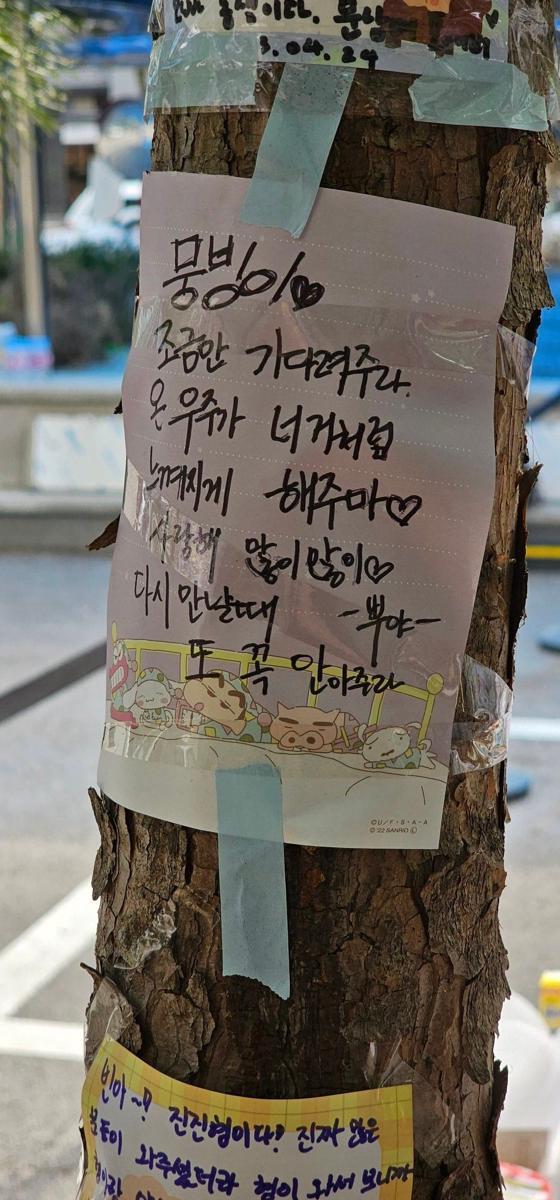 동생이다.
3.04.24
뭉빙이♡
조금만 기다려주라.
온 우주가 너거처럼
느껴지게 해주마♡
사랑해 많이많이♡
다시 만날때 -뿌야-
또 꼭 안아주라
©U/F・S・A・A
© '22 SANRIO Ⓛ
빈아~! 진진형이다! 진짜 많은
와주셨더라 형이 와서 보니까